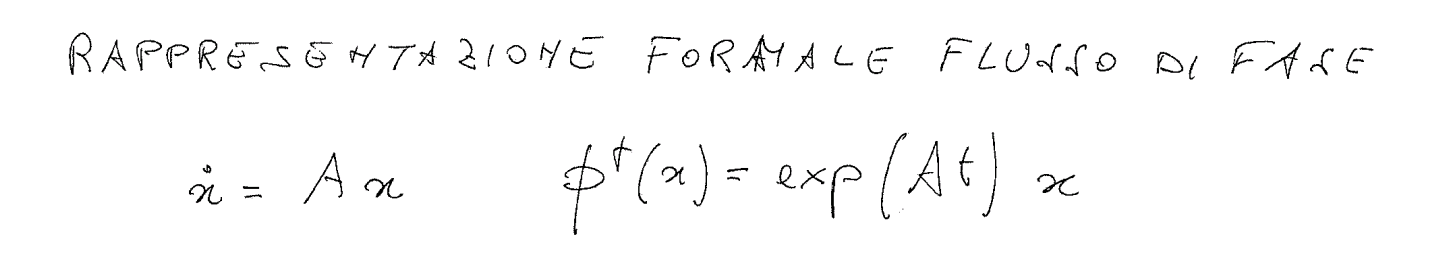 RAPPRESENTAZIONE FORMALE FLUSSO DI FASE
ẋ = A x φᵗ(x) = exp(At) x